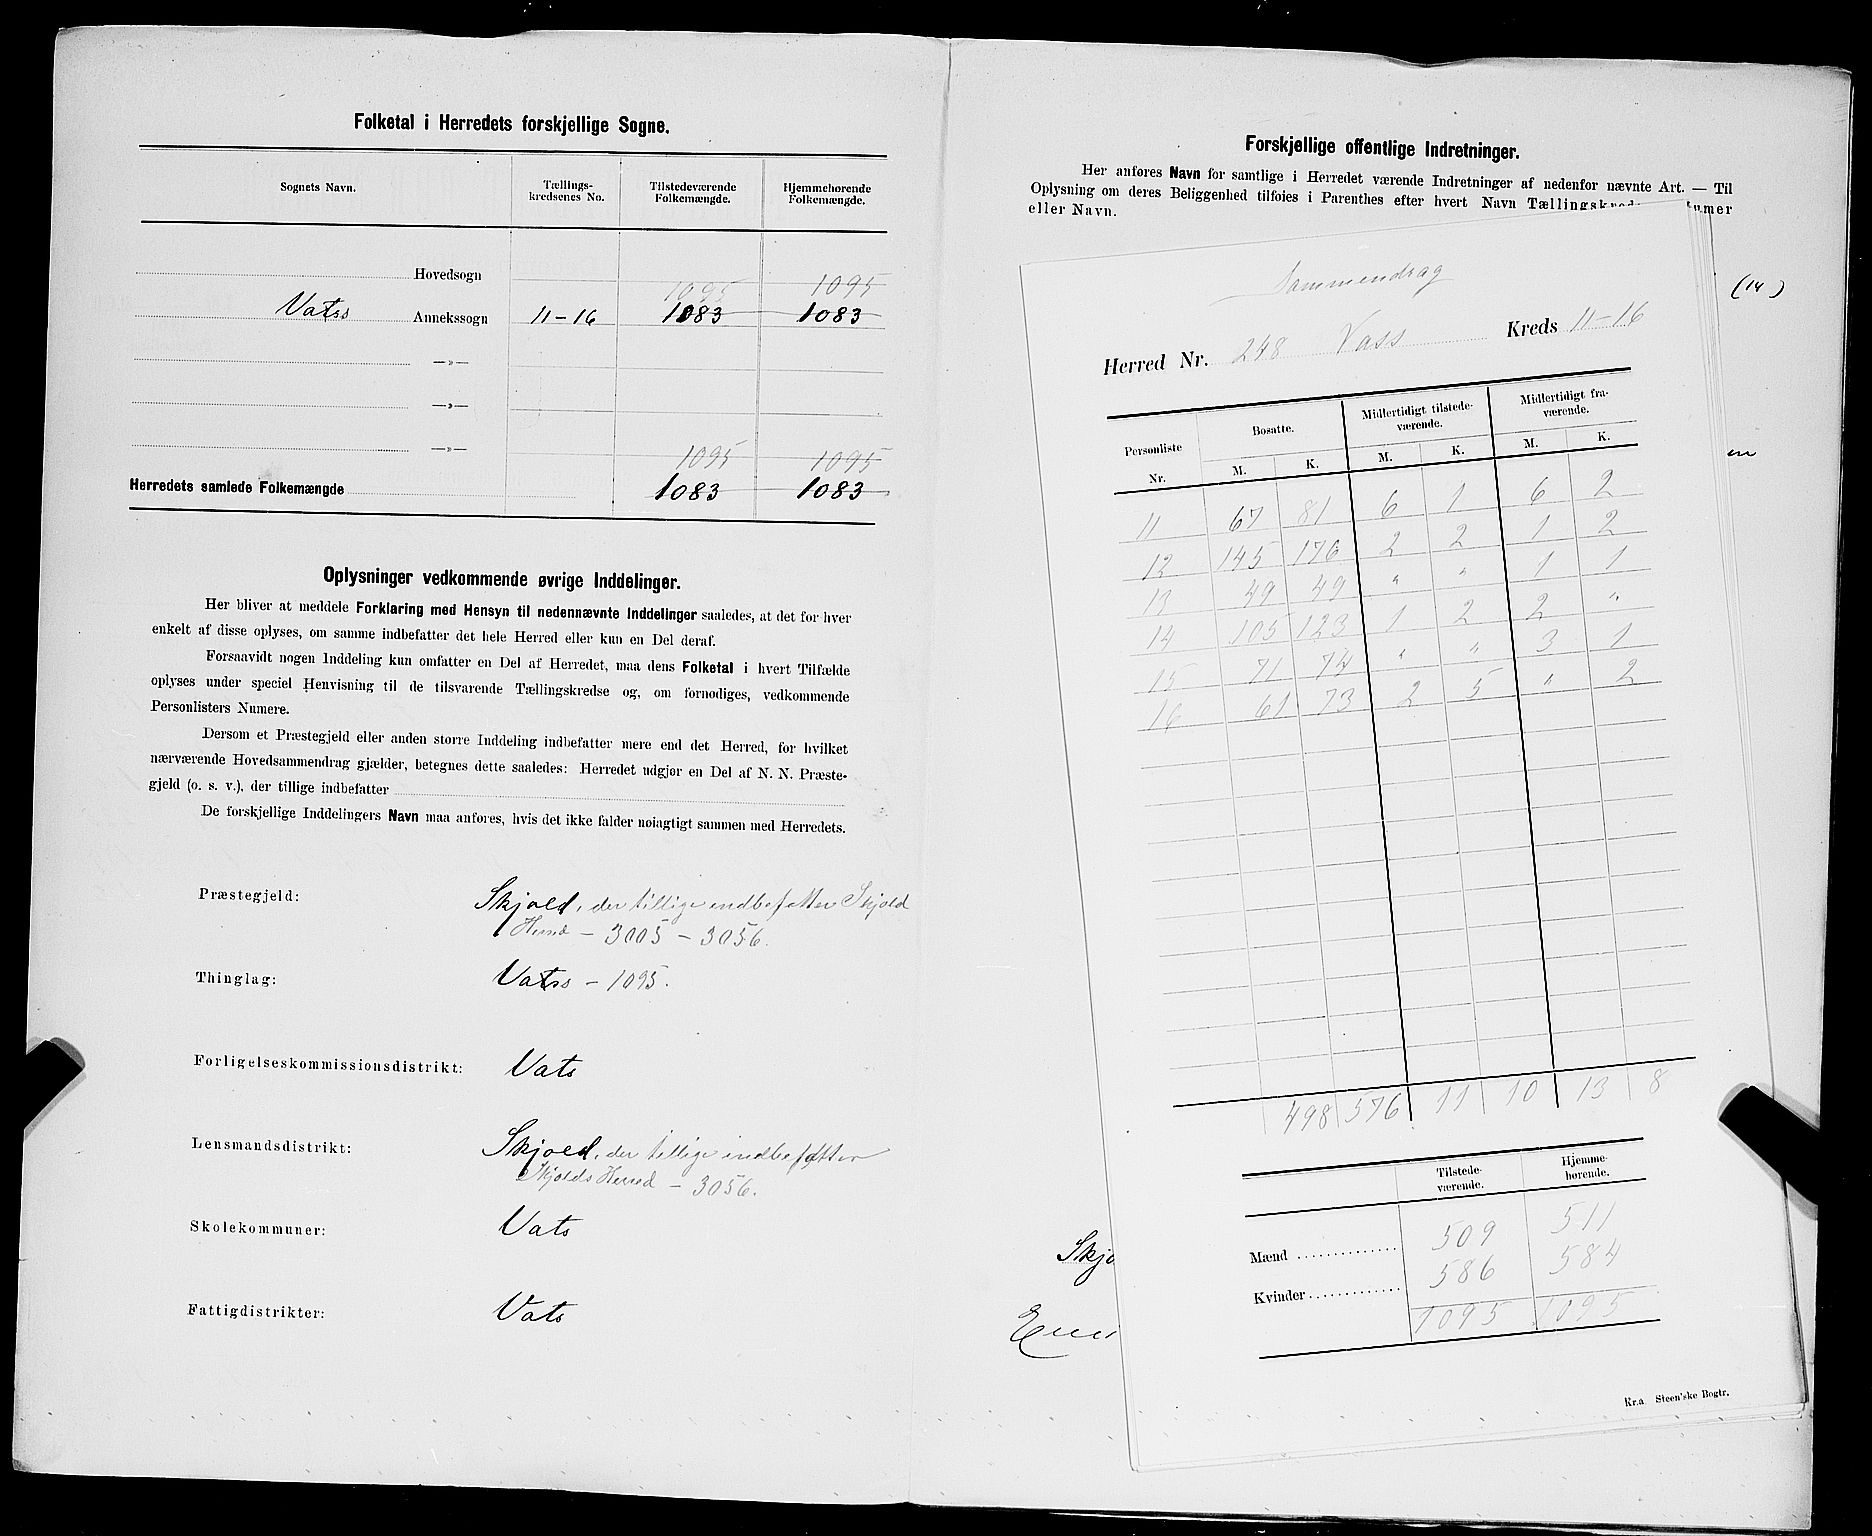 Folketal i Herredets forskjellige Sogne.
Sognets Navn. Tællings-kredsenes No. Tilstedeværende Folkemængde. Hjemmehørende Folkemængde.
Hovedsogn
1095 1095
Vats Annekssogn 11-16 1083 1083
—»—
—»—
—»—
1095 1095
Herredets samlede Folkemængde 1083 1083
Oplysninger vedkommende øvrige Inddelinger.
Her bliver at meddele Forklaring med Hensyn til nedennævnte Inddelinger saaledes, at det for hver
enkelt af disse oplyses, om samme indbefatter det hele Herred eller kun en Del deraf.
Forsaavidt nogen Inddeling kun omfatter en Del af Herredet, maa dens Folketal i hvert Tilfælde
oplyses under speciel Henvisning til de tilsvarende Tællingskredse og, om fornødiges, vedkommende
Personlisters Numere.
Dersom et Præstegjeld eller anden større Inddeling indbefatter mere end det Herred, for hvilket
nærværende Hovedsammendrag gjælder, betegnes dette saaledes: Herredet udgjør en Del af N. N. Præste-
gjeld (o. s. v.), der tillige indbefatter
De forskjellige Inddelingers Navn maa anføres, hvis det ikke falder nøiagtigt sammen med Herredets.
Præstegjeld: Skjold, der tillige indbefatter Skjold
Herred - 3005 - 3056.
Thinglag: Vats - 1095.
Forligelseskommissionsdistrikt: Vats
Lensmandsdistrikt: Skjold, der tillige indbefatter
Skjolds Herred - 3056.
Skolekommuner: Vats
Fattigdistrikter: Vats
Forskjellige offentlige Indretninger.
Her anføres Navn for samtlige i Herredet værende Indretninger af nedenfor nævnte Art. — Til
Oplysning om deres Beliggenhed tilføies i Parenthes efter hvert Navn Tællingskreds umer
eller Navn.
(14)
en
Skjo
Sammendrag
Herred Nr. 248 Vass Kreds 11-16
Personliste Nr. Bosatte. Midlertidigt tilstede-værende. Midlertidigt fra-værende.
M. K. M. K. M. K.
11 67 81 6 1 6 2
12 145 176 2 2 1 2
13 49 49 " " 1 1
14 105 123 1 2 2 "
15 71 74 " " 3 1
16 61 73 2 5 " 2
498 576 11 10 13 8
Tilstede-værende. Hjemme-hørende.
Mænd 509 511
Kvinder 586 584
1095 1095
Kr.a Steen'ske Bogtr.